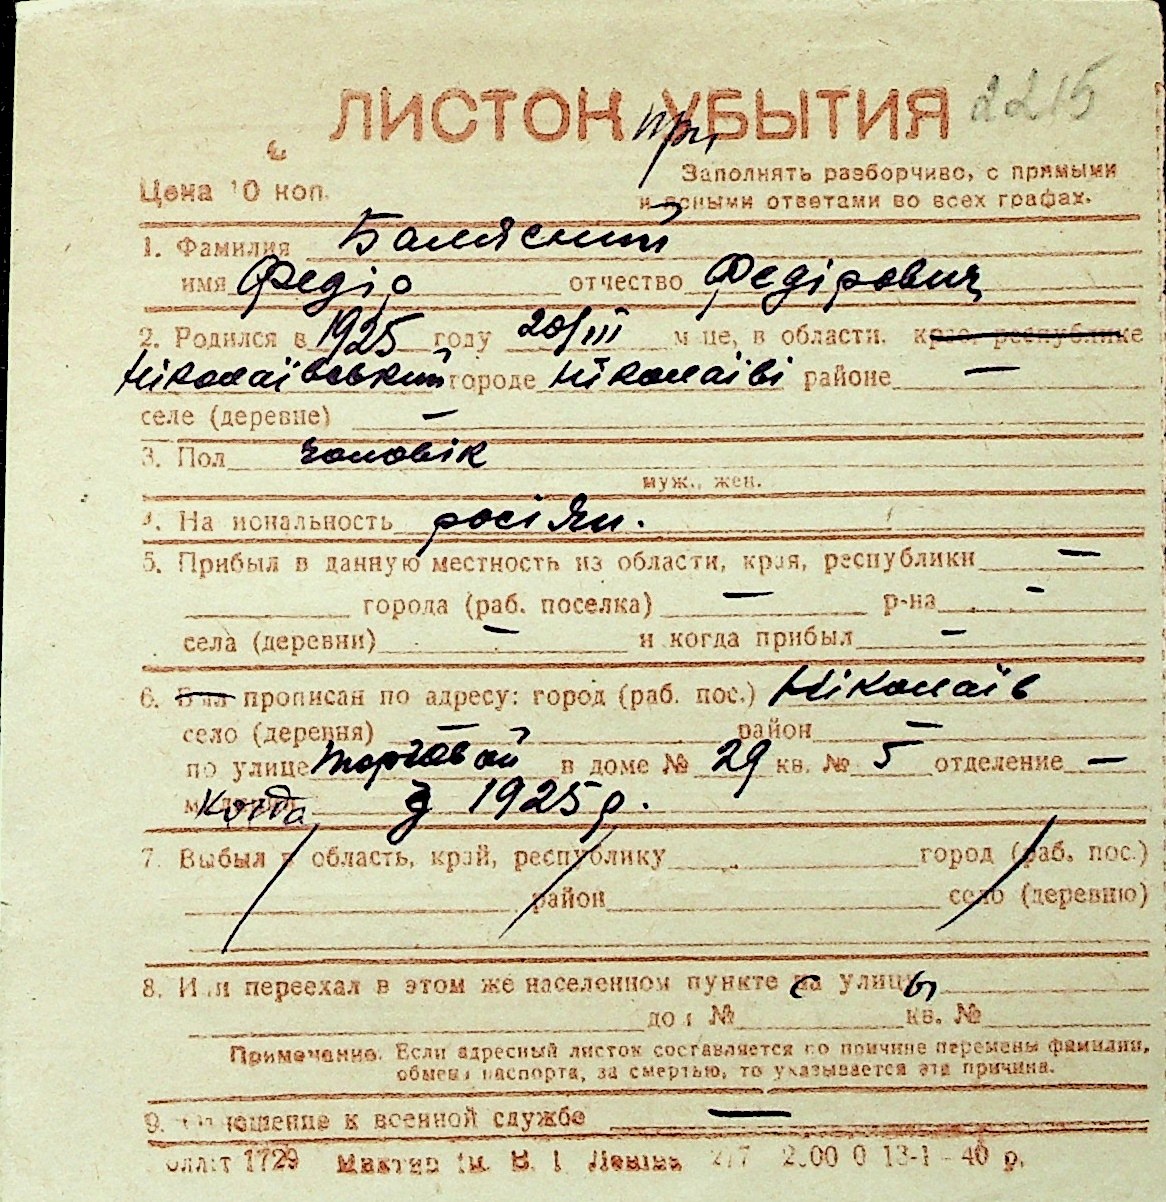 ЛИСТОК УБЫТИЯ 2215
при
Цена 10 коп.
Заполнять разборчиво, с прямыми
и ясными ответами во всех графах.
1. Фамилия Балясний
имя Федір отчество Федірович
2. Родился в 1925 году 20/III м-це, в области, крае, республике
Ніколаївський городе Ніколаїві районе —
селе (деревне) —
3. Пол чоловік
муж., жен.
4. Национальность росіян.
5. Прибыл в данную местность из области, края, республики —
города (раб. поселка) — р-на —
села (деревни) — и когда прибыл —
6. Был прописан по адресу: город (раб. пос.) Ніколаїв
село (деревня) — район —
по улице Торговой в доме № 29 кв. № 5 отделение —
Когда З 1925 р.
7. Выбыл в область, край, республику город (раб. пос.)
район село (деревню)
8. Или переехал в этом же населенном пункте с улицы
дом № кв. №
Примечание. Если адресный листок составляется по причине перемены фамилии,
обмена паспорта, за смертью, то указывается эта причина.
9. Отношение к военной службе —
1729 ім. В. І. Леніна 13-1 - 40 р.